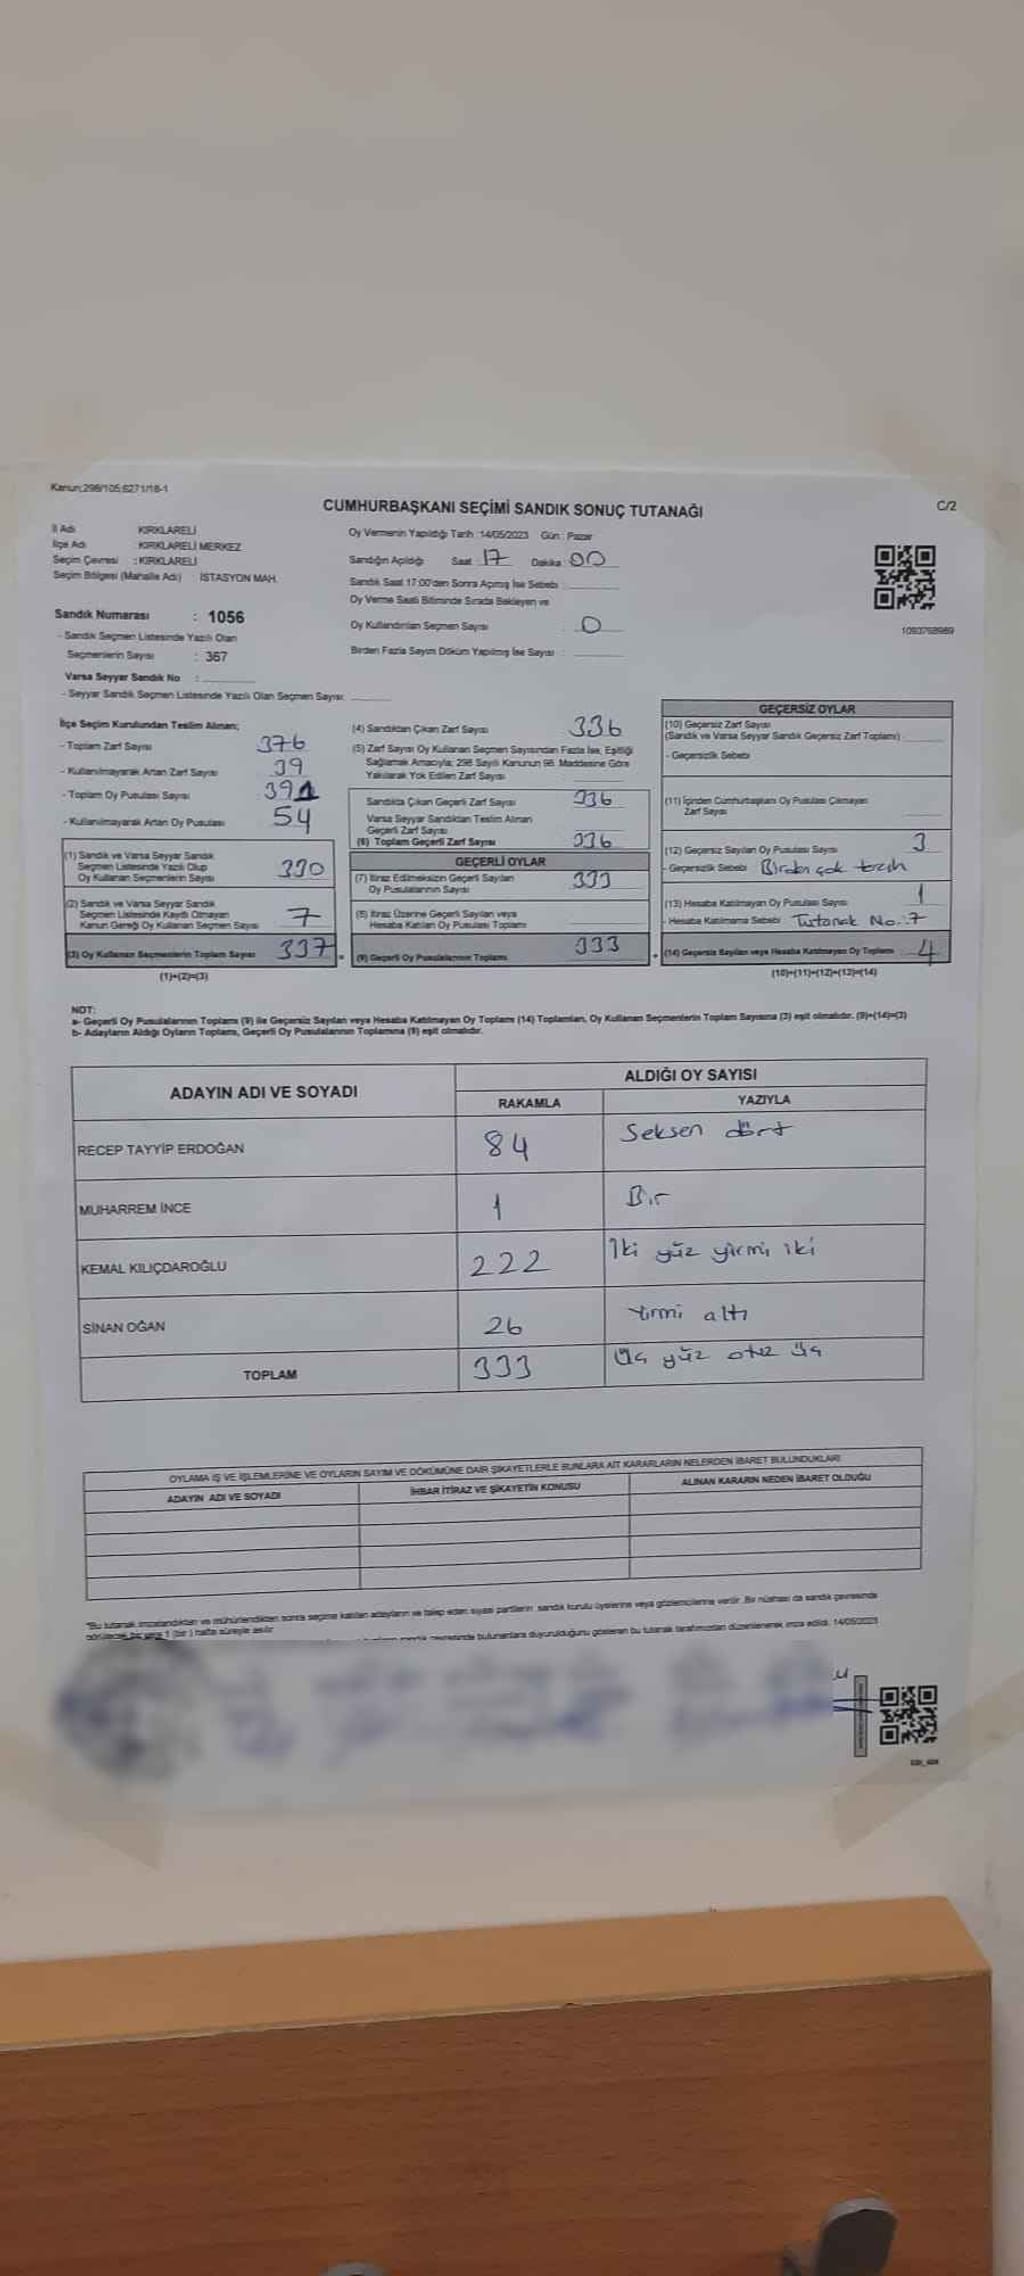 Kanun;298/105;6271/18-1
CUMHURBAŞKANI SEÇİMİ SANDIK SONUÇ TUTANAĞI
C/2
İl Adı KIRKLARELİ
İlçe Adı KIRKLARELİ MERKEZ
Seçim Çevresi : KIRKLARELİ
Seçim Bölgesi (Mahalle Adı) İSTASYON MAH.
Oy Vermenin Yapıldığı Tarih :14/05/2023 Gün : Pazar
Sandığın Açıldığı Saat 17 Dakika 00
Sandık Saat 17:00'den Sonra Açılmış İse Sebebi :
Oy Verme Saati Bitiminde Sırada Bekleyen ve
Oy Kullandırılan Seçmen Sayısı : 0
Birden Fazla Sayım Döküm Yapılmış İse Sayısı :
Sandık Numarası : 1056
- Sandık Seçmen Listesinde Yazılı Olan
Seçmenlerin Sayısı : 367
Varsa Seyyar Sandık No :
- Seyyar Sandık Seçmen Listesinde Yazılı Olan Seçmen Sayısı:
İlçe Seçim Kurulundan Teslim Alınan;
- Toplam Zarf Sayısı 376
- Kullanılmayarak Artan Zarf Sayısı 39
- Toplam Oy Pusulası Sayısı 391
- Kullanılmayarak Artan Oy Pusulası 54
(1) Sandık ve Varsa Seyyar Sandık
Seçmen Listesinde Yazılı Olup
Oy Kullanan Seçmenlerin Sayısı 330
(2) Sandık ve Varsa Seyyar Sandık
Seçmen Listesinde Kayıtlı Olmayan
Kanun Gereği Oy Kullanan Seçmen Sayısı 7
(3) Oy Kullanan Seçmenlerin Toplam Sayısı 337
(1)+(2)=(3)
(4) Sandıktan Çıkan Zarf Sayısı 336
(5) Zarf Sayısı Oy Kullanan Seçmen Sayısından Fazla İse, Eşitliği
Sağlamak Amacıyla; 298 Sayılı Kanunun 98. Maddesine Göre
Yakılarak Yok Edilen Zarf Sayısı
Sandıkta Çıkan Geçerli Zarf Sayısı 336
Varsa Seyyar Sandıktan Teslim Alınan
Geçerli Zarf Sayısı
(6) Toplam Geçerli Zarf Sayısı 336
GEÇERLİ OYLAR
(7) İtiraz Edilmeksizin Geçerli Sayılan
Oy Pusulalarının Sayısı 333
(8) İtiraz Üzerine Geçerli Sayılan veya
Hesaba Katılan Oy Pusulası Toplamı
(9) Geçerli Oy Pusulalarının Toplamı 333
1093768989
GEÇERSİZ OYLAR
(10) Geçersiz Zarf Sayısı
(Sandık ve Varsa Seyyar Sandık Geçersiz Zarf Toplamı)
- Geçersizlik Sebebi
(11) İçinden Cumhurbaşkanı Oy Pusulası Çıkmayan
Zarf Sayısı
(12) Geçersiz Sayılan Oy Pusulası Sayısı 3
- Geçersizlik Sebebi Birden çok tercih
(13) Hesaba Katılmayan Oy Pusulası Sayısı 1
- Hesaba Katılmama Sebebi Tutanak No:7
(14) Geçersiz Sayılan veya Hesaba Katılmayan Oy Toplamı 4
(10)+(11)+(12)+(13)=(14)
NOT:
a- Geçerli Oy Pusulalarının Toplamı (9) ile Geçersiz Sayılan veya Hesaba Katılmayan Oy Toplamı (14) Toplamları, Oy Kullanan Seçmenlerin Toplam Sayısına (3) eşit olmalıdır. (9)+(14)=(3)
b- Adayların Aldığı Oyların Toplamı, Geçerli Oy Pusulalarının Toplamına (9) eşit olmalıdır.
ADAYIN ADI VE SOYADI
ALDIĞI OY SAYISI
RAKAMLA YAZIYLA
RECEP TAYYİP ERDOĞAN 84 Seksen dört
MUHARREM İNCE 1 Bir
KEMAL KILIÇDAROĞLU 222 İki yüz yirmi iki
SİNAN OĞAN 26 Yirmi altı
TOPLAM 333 Üç yüz otuz üç
OYLAMA İŞ VE İŞLEMLERİNE VE OYLARIN SAYIM VE DÖKÜMÜNE DAİR ŞİKAYETLERLE BUNLARA AİT KARARLARIN NELERDEN İBARET BULUNDUKLARI
ADAYIN ADI VE SOYADI İHBAR İTİRAZ VE ŞİKAYETİN KONUSU ALINAN KARARIN NEDEN İBARET OLDUĞU
"Bu tutanak imzalandıktan ve mühürlendikten sonra seçime katılan adayların ve talep eden siyasi partilerin sandık kurulu üyelerine veya gözlemcilerine verilir. Bir nüshası da sandık çevresinde
görülecek bir yere 1 (bir) hafta süreyle asılır
sandık çevresinde bulunanlara duyurulduğunu gösteren bu tutanak tarafımızdan düzenlenerek imza edildi. 14/05/2023